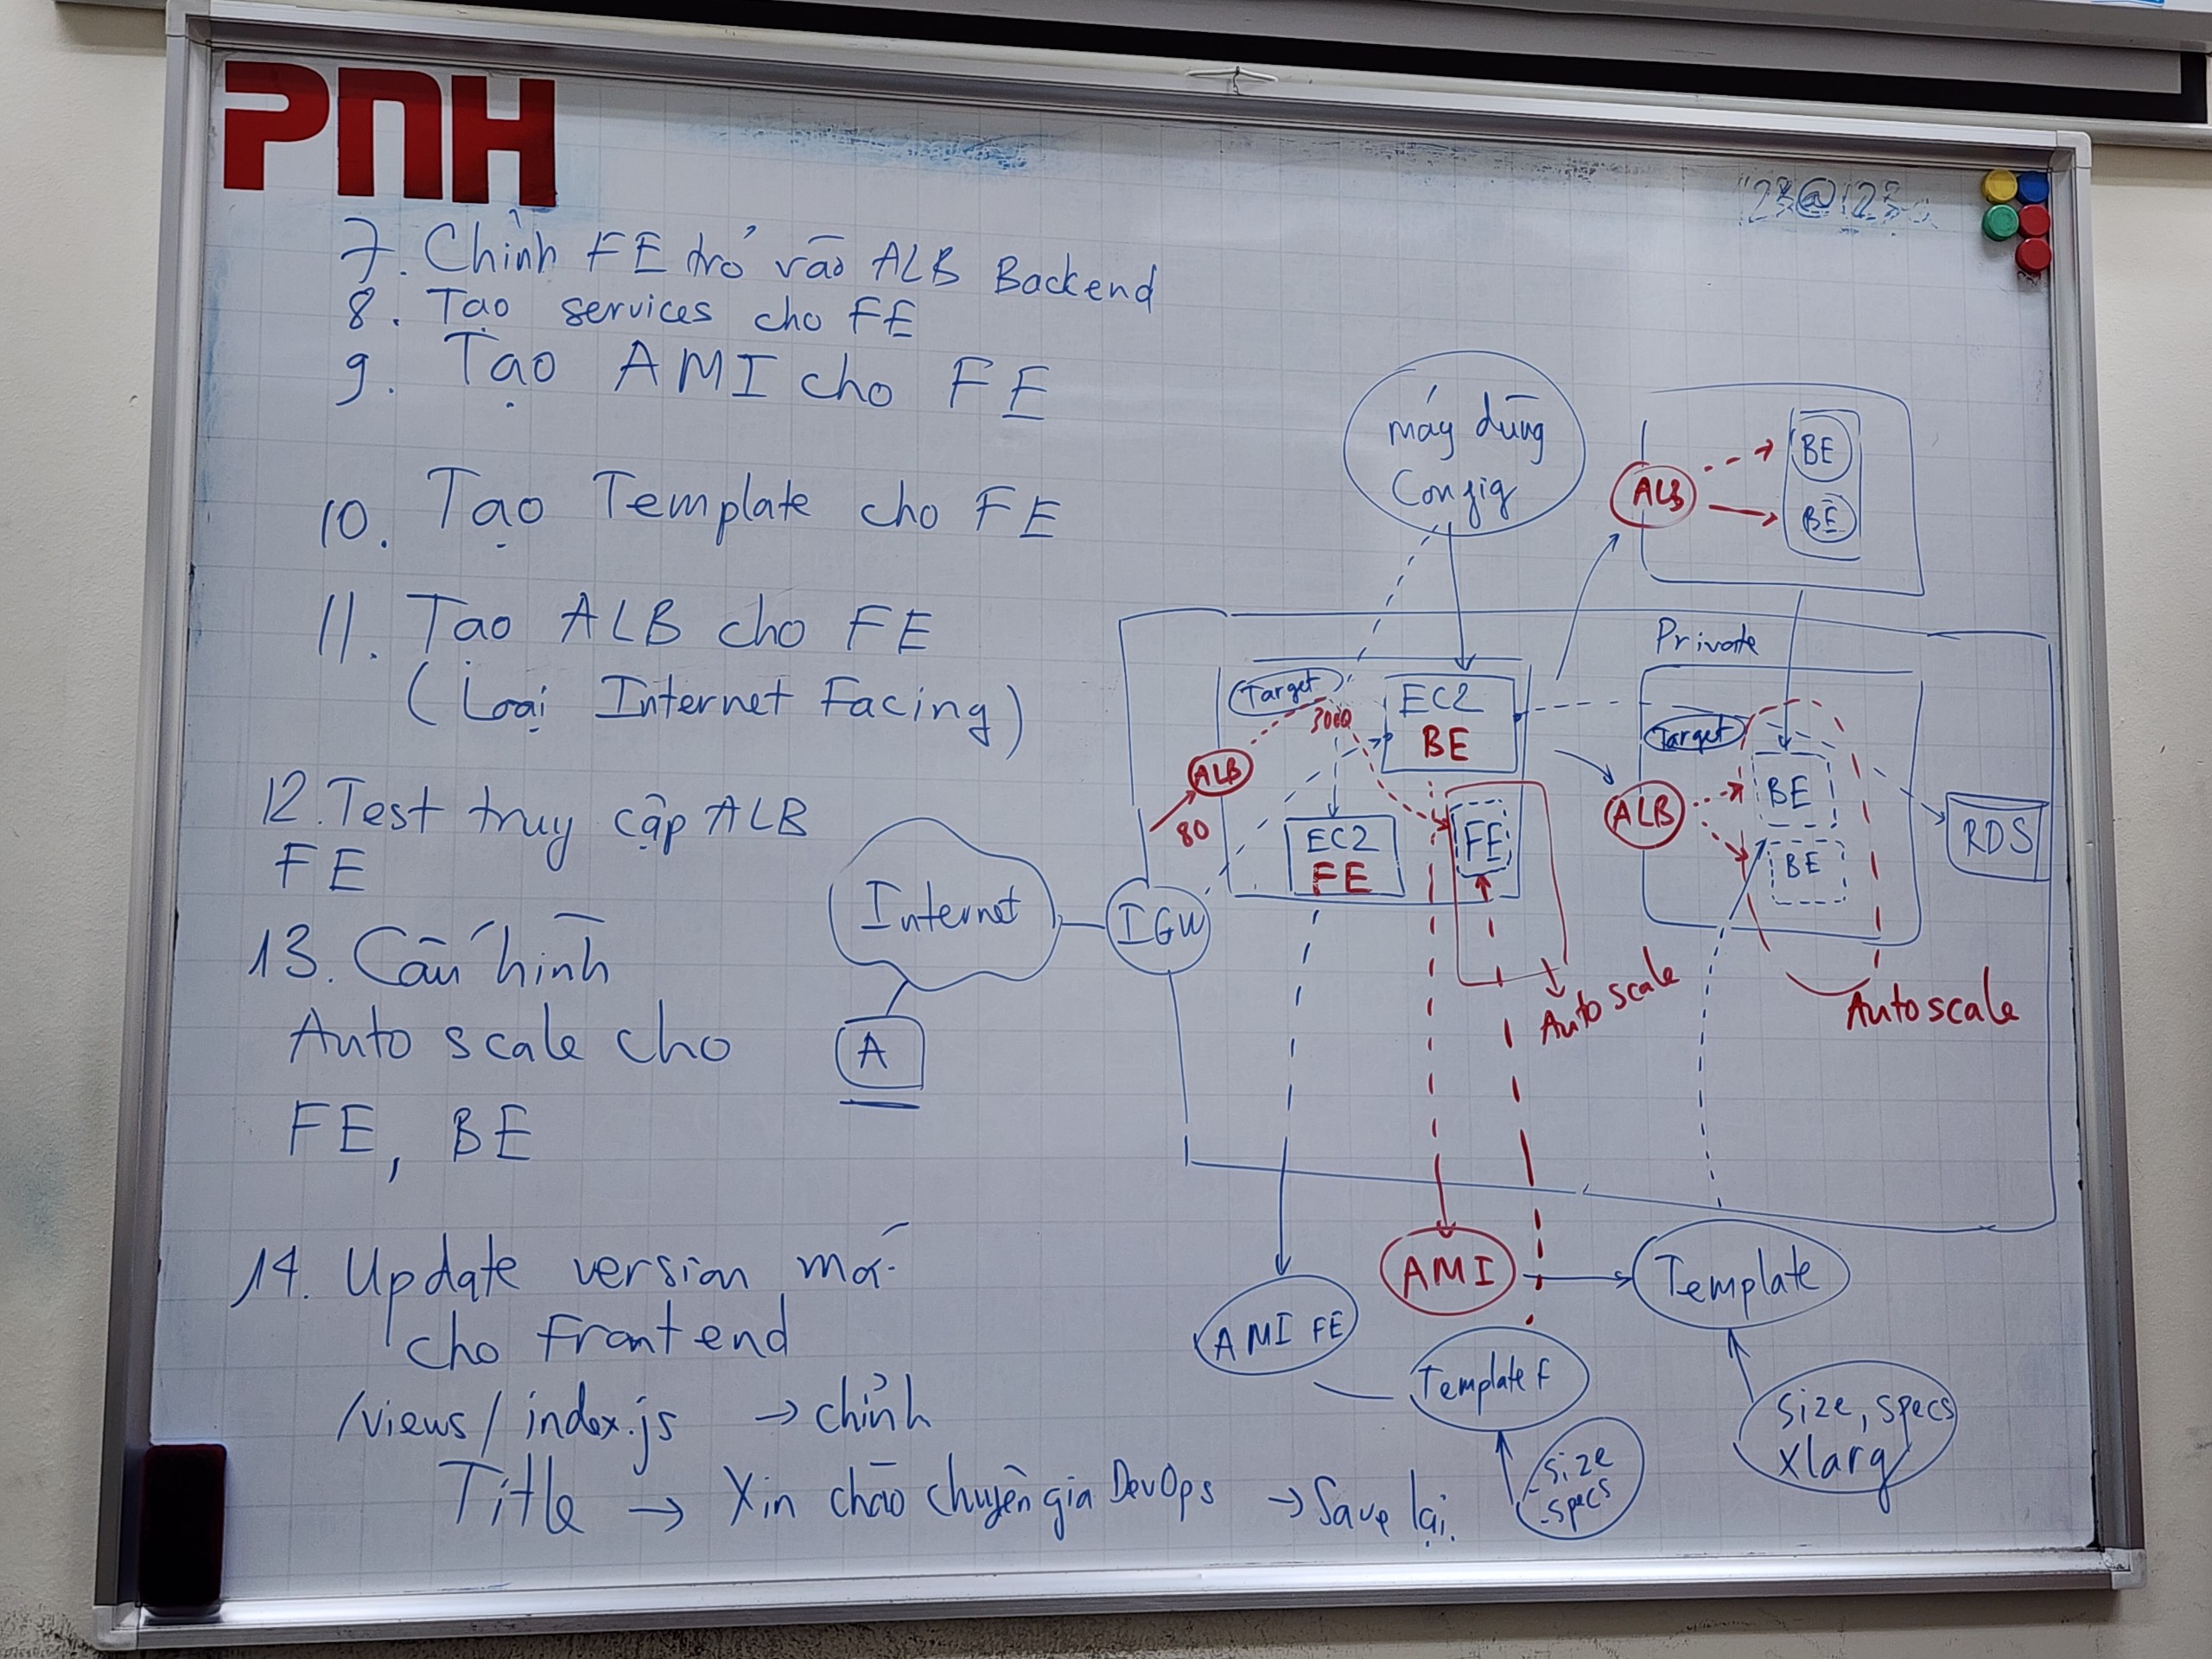 PNH
7. Chỉnh FE trỏ vào ALB Backend
8. Tạo services cho FE
9. Tạo AMI cho FE
10. Tạo Template cho FE
11. Tạo ALB cho FE
(Loại Internet Facing)
12. Test truy cập ALB
FE
13. Cấu hình
Auto scale cho
FE, BE
14. Update version mới
cho Frontend
/views/index.js → chỉnh
Title → Xin chào chuyên gia DevOps → Save lại.
máy dùng
Config
ALB
BE
BE
Private
Target
3000
EC2
BE
ALB
80
EC2
FE
FE
Auto scale
Target
ALB
BE
BE
Auto scale
RDS
Internet
IGW
A
AMI FE
AMI
Template
Template F
- size
- specs
size, specs
xlarg